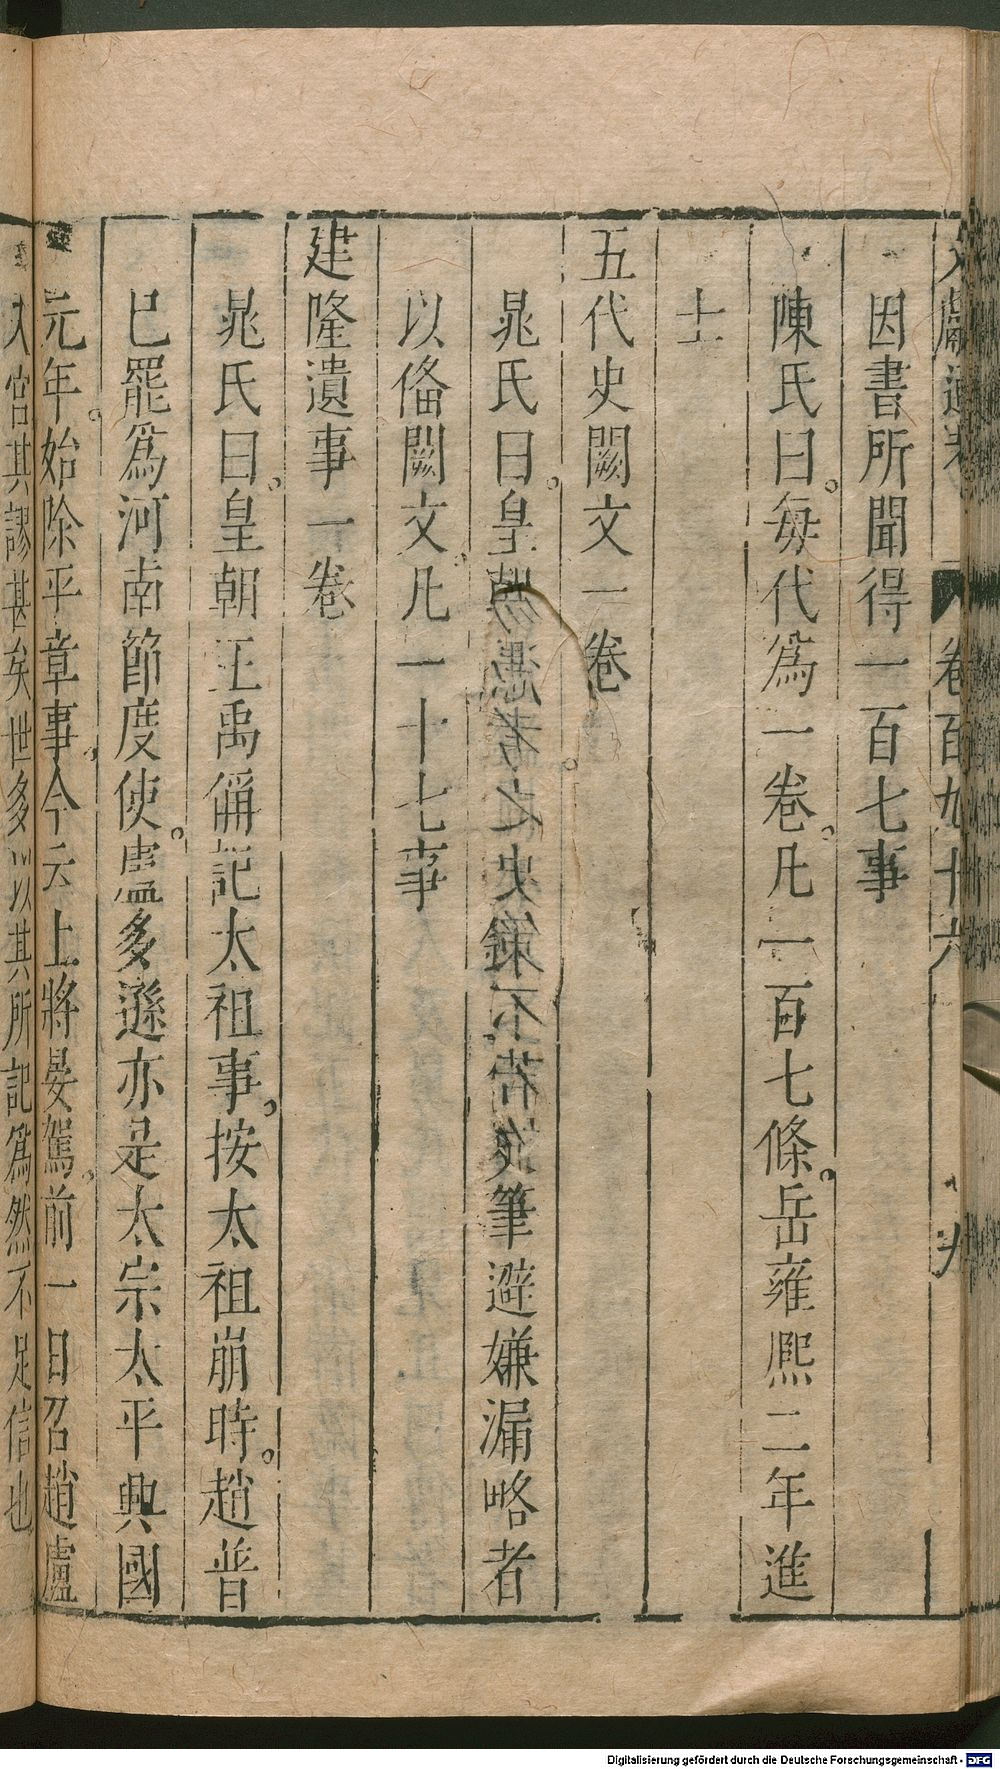 文獻通考 卷百九十六 九
因書所聞得一百七事
陳氏曰每代爲一卷凡一百七條岳雍熙二年進
士
五代史闕文一卷
晁氏曰皇 史 不 筆避嫌漏略者
以俻闕文凡一十七事
建隆遺事一卷
晁氏曰皇朝王禹偁記太祖事按太祖崩時趙普
已罷爲河南節度使盧多遜亦是太宗太平興國
元年始除平章事今云上將晏駕前一日召趙盧
入宮其謬甚矣世多以其所記爲然不足信也
Digitalisierung gefördert durch die Deutsche Forschungsgemeinschaft - DFG